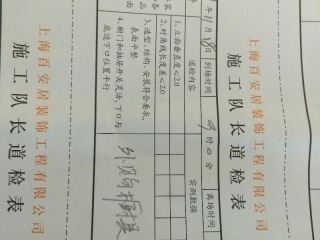 上海百安居装饰工程有限公司
施工队长道检表
年11月18日 到场时间 9时0分 离场时间
巡检内容 实测数据
1、立面垂直度≤2.0
2、对角线长度差≤2.0
3、造型、结构、安装符合要求，
表面平整
4、橱门和抽屉开关灵活，下口与
底边下口位置平行
上海百安居装饰工程有限公司
施工队长道检表